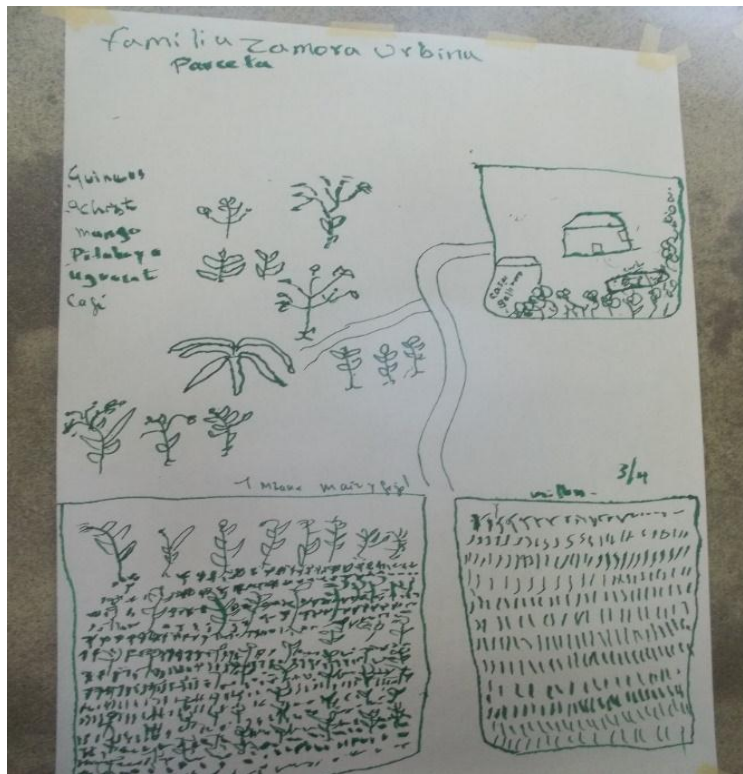 familia Zamora Urbina
Parcela
Guineos
Achiot
mango
Pitahaya
aguacat
Café
casa
gallinas
1 mzana maiz y frijol
3/4